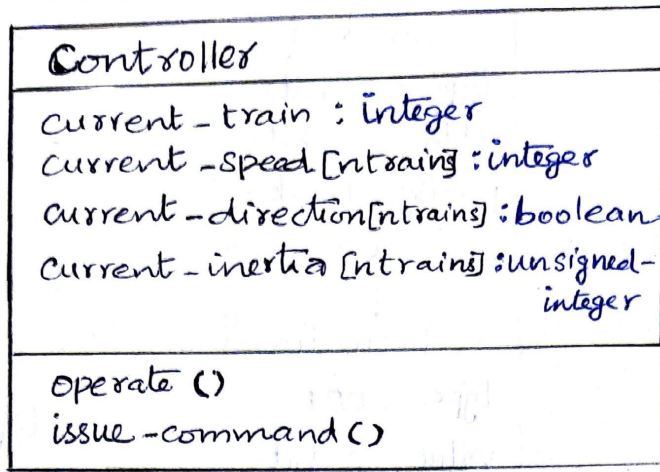 Controller
current_train : integer
current-speed[ntrains] : integer
current-direction[ntrains] : boolean
current-inertia [ntrains] : unsigned-
integer
operate ()
issue-command ()